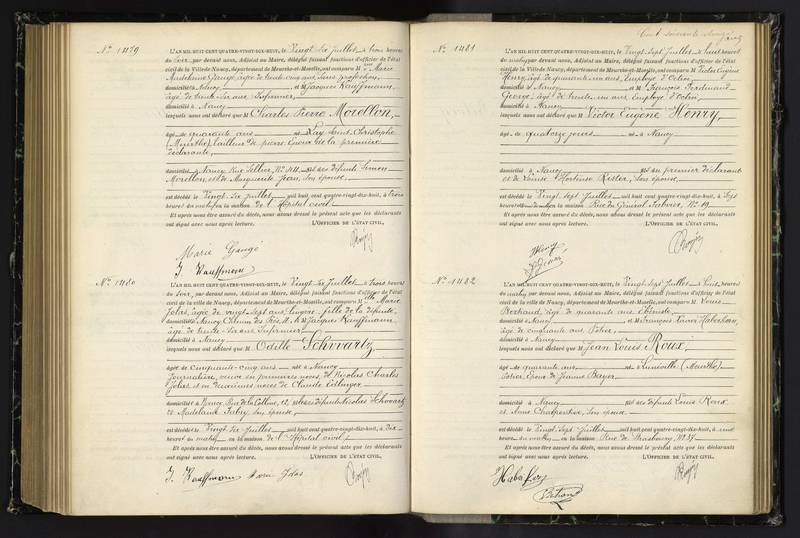 N° 1479
L'AN MIL HUIT CENT QUATRE-VINGT-DIX-HUIT, le Vingt Six Juillet à trois heures
du Soir, par devant nous, Adjoint au Maire, délégué faisant fonctions d'officier de l'état
civil de la Ville de Nancy, département de Meurthe-et-Moselle, ont comparu M Marie
Madeleine Gangé, âgée de trente-cinq ans, Sans profession,
domiciliée à Nancy et M Jacques Kauffmann,
âgé de trente-six ans Infirmier
domicilié à Nancy
lesquels nous ont déclaré que M Charles Pierre Morellon,
âgé de quarante ans né à Lay Saint Christophe
(Meurthe) tailleur de pierre Epoux de la première
déclarante,
domicilié à Nancy Rue Sellier, N° 44 fils des défunts Simon
Morellon et de Marguerite Jean, Son épouse,
est décédé le Vingt Six Juillet mil huit cent quatre-vingt-dix-huit, à trois
heures du matin en la maison de l'Hôpital civil,
Et après nous être assuré du décès, nous avons dressé le présent acte que les déclarants
ont signé avec nous après lecture. L'OFFICIER DE L'ÉTAT CIVIL,
Marie Gangé
J. Kauffmann
N° 1480
L'AN MIL HUIT CENT QUATRE-VINGT-DIX-HUIT, le Vingt Six Juillet à trois heures
du Soir, par devant nous, Adjoint au Maire, délégué faisant fonctions d'officier de l'état
civil de la ville de Nancy, département de Meurthe-et-Moselle, ont comparu Melle Marie
Jolas, âgée de vingt-sept ans lingère, fille de la défunte,
domiciliée à Nancy et M Jacques Kauffmann,
âgé de trente-six ans Infirmier
domicilié à Nancy
lesquels nous ont déclaré que M Odille Schwartz,
âgée de Cinquante-cinq ans née à Nancy
Journalière, veuve en premières noces de Nicolas Charles
Jolas et en deuxièmes noces de Claude
domiciliée à Nancy, Rue de la Colline, 12, fille des défunts Nicolas Schwartz
et Madelaine Fabry, Son épouse,
est décédée le Vingt Six Juillet mil huit cent quatre-vingt-dix-huit, à Dix
heures du matin en la maison de l'Hôpital civil,
Et après nous être assuré du décès, nous avons dressé le présent acte que les déclarants
ont signé avec nous après lecture. L'OFFICIER DE L'ÉTAT CIVIL,
J. Kauffmann Marie Jolas
Cent soixante
N° 1481
L'AN MIL HUIT CENT QUATRE-VINGT-DIX-HUIT, le Vingt Sept Juillet à huit heures
du matin par devant nous, Adjoint au Maire, délégué faisant fonctions d'officier de l'état
civil de la Ville de Nancy, département de Meurthe-et-Moselle, ont comparu M Victor Eugène
Henry, âgé de quarante un ans, Employé d'octroi,
domicilié à Nancy et M François Ferdinand
George, âgé de trente un ans Employé d'octroi,
domicilié à Nancy
lesquels nous ont déclaré que M Victor Eugène Henry,
âgé de quatorze jours né à Nancy
domicilié à Nancy fils du premier déclarant
et de Louise Hortense Résler, Son épouse,
est décédé le Vingt Sept Juillet mil huit cent quatre-vingt-dix-huit, à Sept
heures du matin en la maison Rue du Général Fabvier, N° 19
Et après nous être assuré du décès, nous avons dressé le présent acte que les déclarants
ont signé avec nous après lecture. L'OFFICIER DE L'ÉTAT CIVIL,
Henry
N° 1482
L'AN MIL HUIT CENT QUATRE-VINGT-DIX-HUIT, le Vingt Sept Juillet à huit heures
du matin par devant nous, Adjoint au Maire, délégué faisant fonctions d'officier de l'état
civil de la ville de Nancy, département de Meurthe-et-Moselle, ont comparu M Louis
Bertrand, âgé de quarante ans Ebéniste
domicilié à Nancy et M François Xavier Haberkorn,
âgé de cinquante ans Potier,
domicilié à Nancy
lesquels nous ont déclaré que M Jean Louis Roux,
âgé de quarante ans né à Lunéville (Meurthe)
Potier, Epoux de Jeanne Beyer
domicilié à Nancy fils des défunts Louis Roux
et Anne Charpentier, Son épouse,
est décédé le Vingt Sept Juillet mil huit cent quatre-vingt-dix-huit, à une
heure du matin en la maison Rue de Strasbourg N° 37
Et après nous être assuré du décès, nous avons dressé le présent acte que les déclarants
ont signé avec nous après lecture. L'OFFICIER DE L'ÉTAT CIVIL,
Bertrand